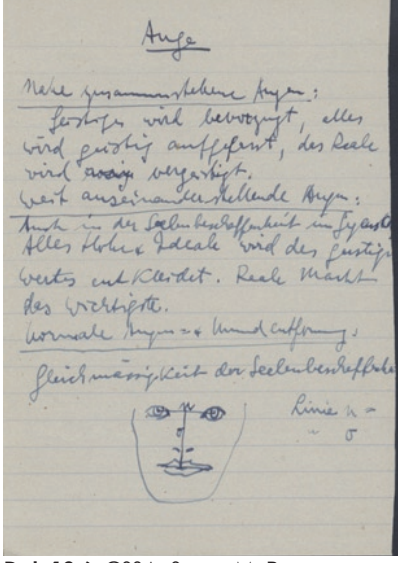 Auge
Nahe zusammenstehene Augen:
Geistiges wird bevorzugt, alles
wird geistig aufgefasst, das Reale
wird vergeistigt.
Weit auseinanderstellende Augen:
Auch in der Seelenbeschaffenheit im
Alles Hohe & Ideale wird des geistigen
Wertes entkleidet. Reale Macht
das wichtigste.
Normale Augen= & Mundentfernung:
Gleichmässigkeit der Seelenbeschaffenhe
Linie n =
" σ
n
σ